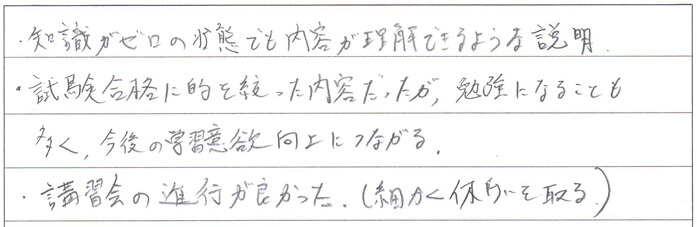 ・知識がゼロの状態でも内容が理解できるような説明.
・試験合格に的を絞った内容だったが、勉強になることも
多く、今後の学習意欲向上につながる.
・講習会の進行が良かった.(細かく休憩を取る)